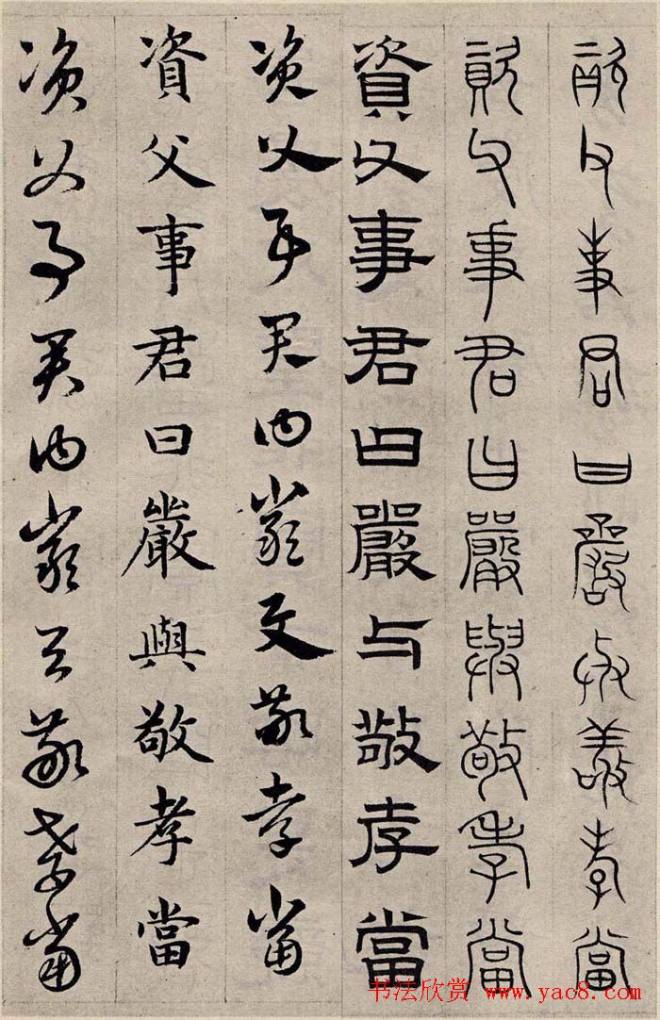 資父事君曰嚴與敬孝當
資父事君曰嚴與敬孝當
資父事君曰嚴与敬孝當
資父事君曰嚴与敬孝當
資父事君曰嚴與敬孝當
資父事君曰嚴与敬孝當
书法欣赏 www.yac8.com